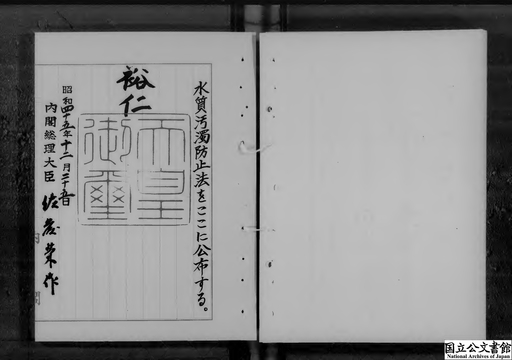 水質汚濁防止法をここに公布する。
裕仁
天皇御璽
昭和四十五年十二月二十五日
内閣総理大臣 佐藤栄作
国立公文書館
National Archives of Japan